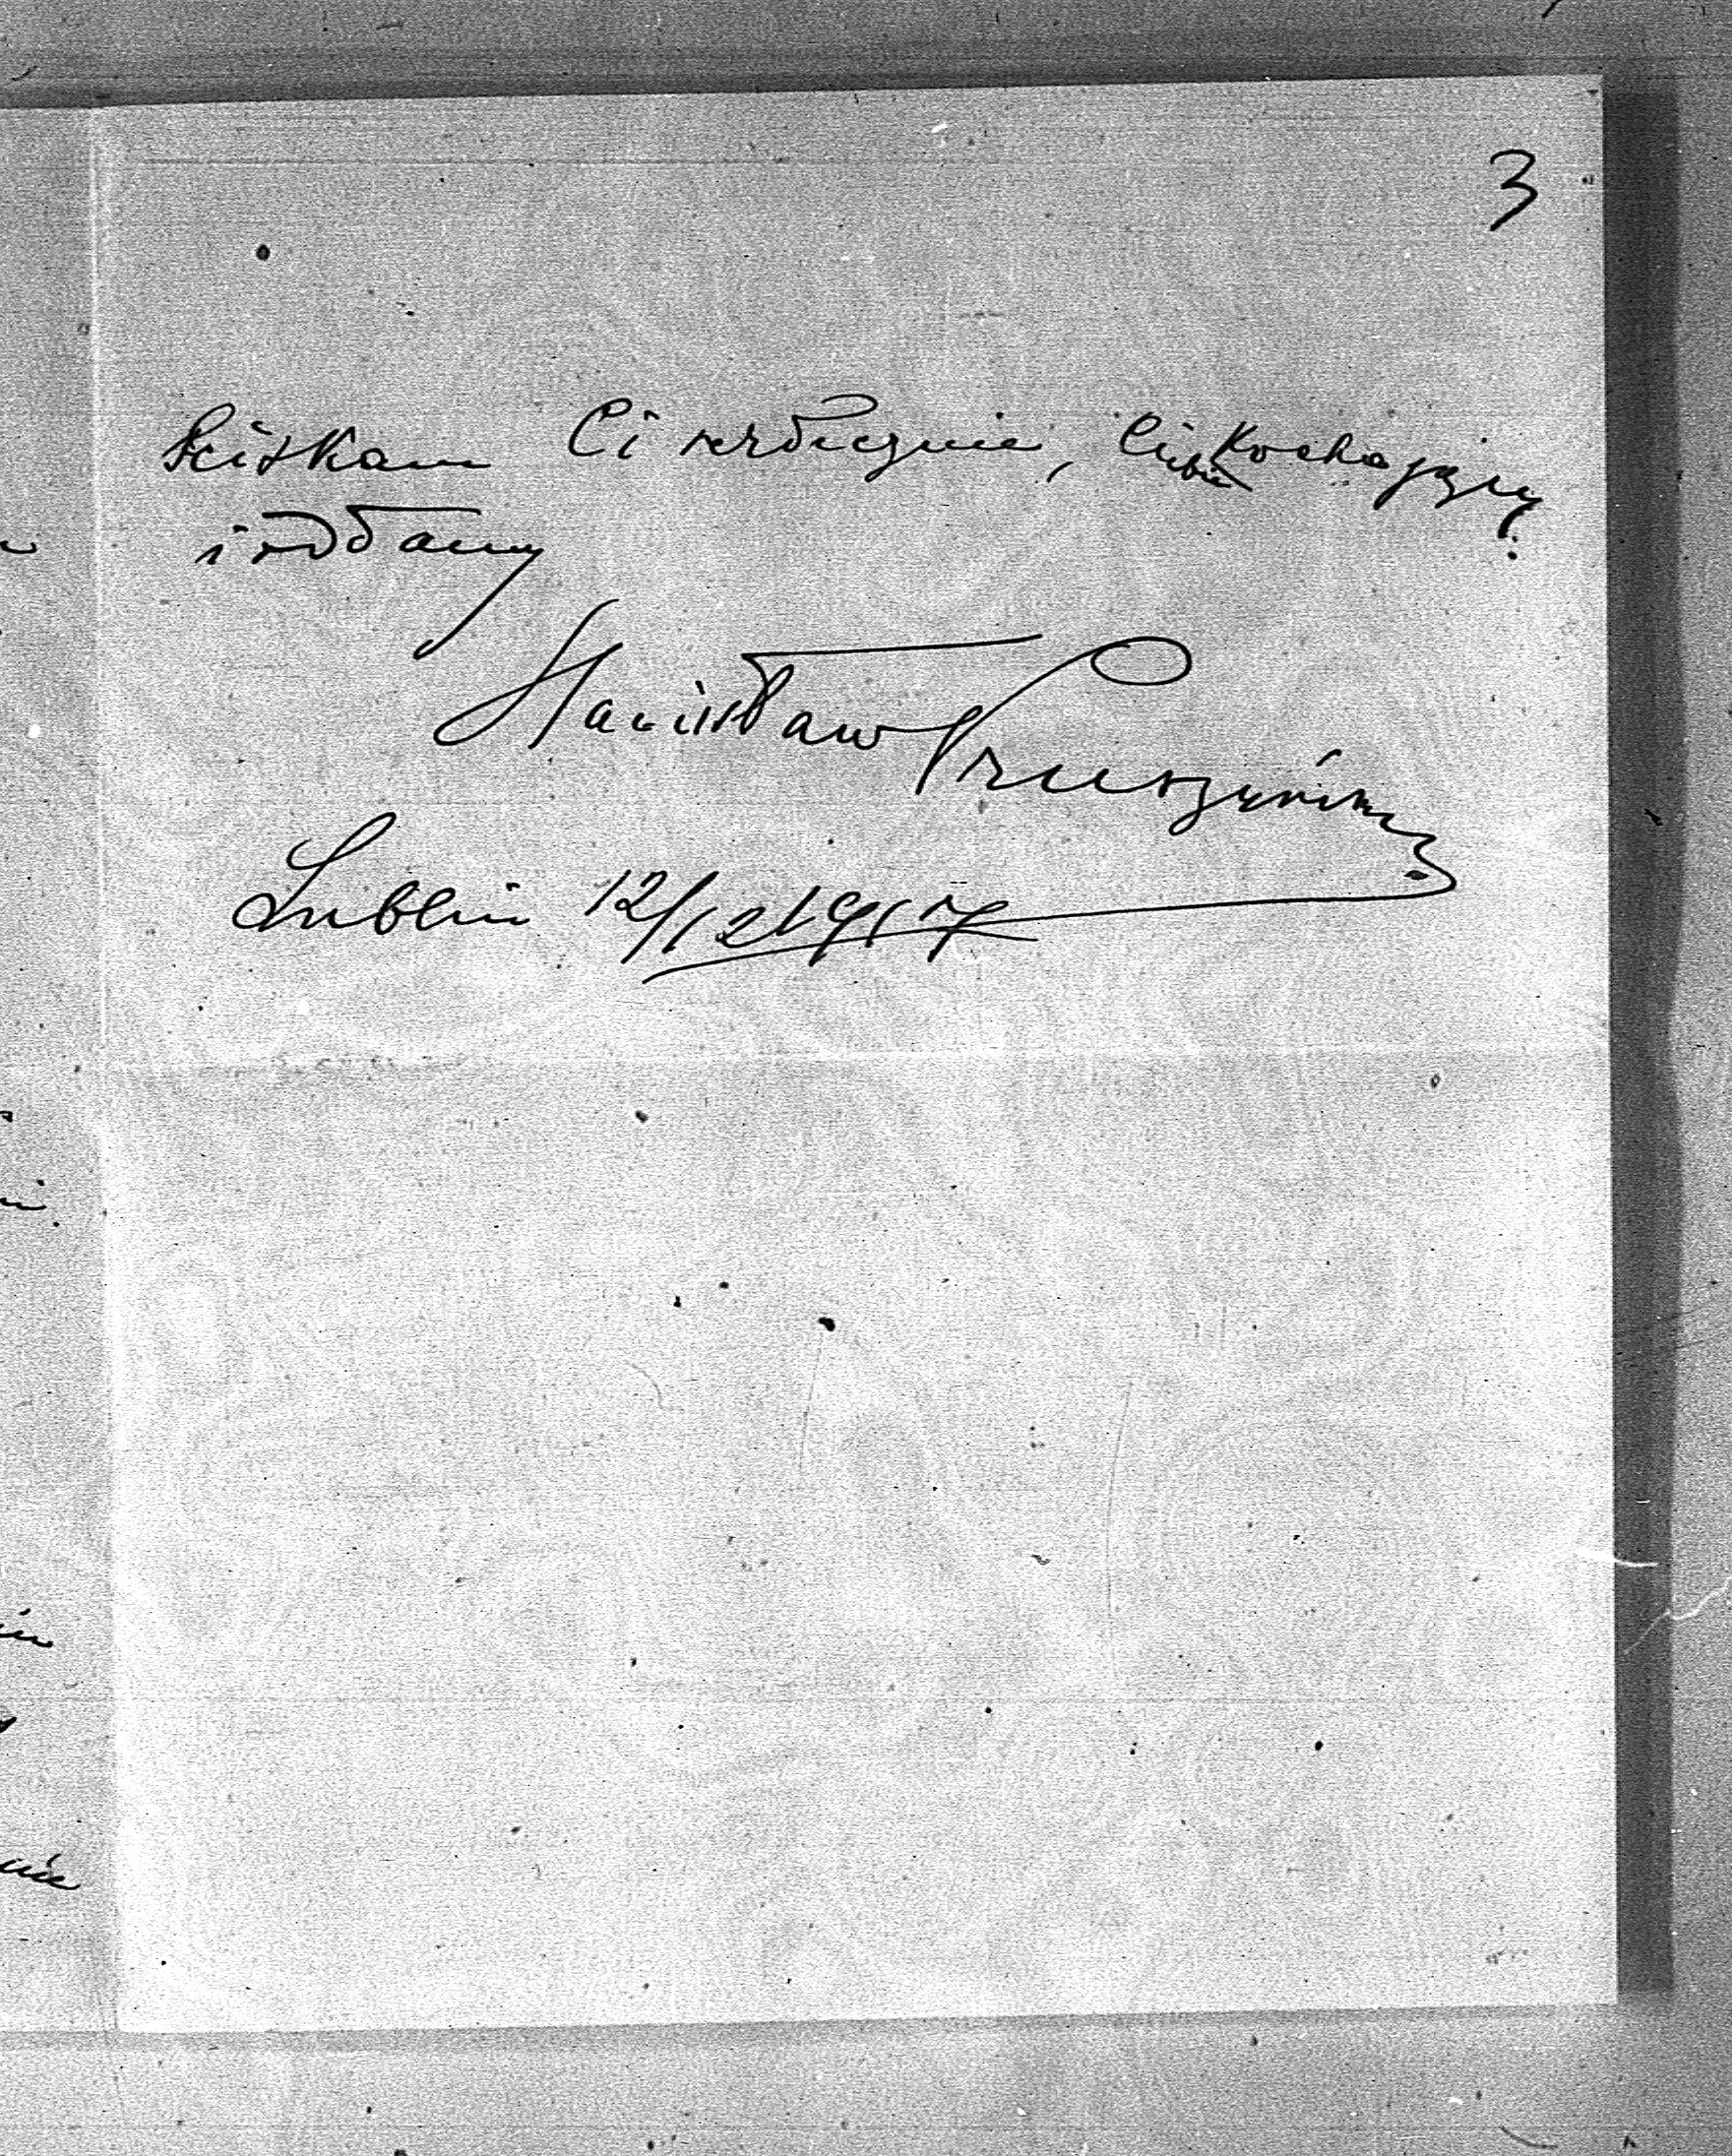 3
Ściskam Ci serdecznie, Ciebie kochający
i oddany
Stanisław Pruszyński
Lublin 12/12 1917